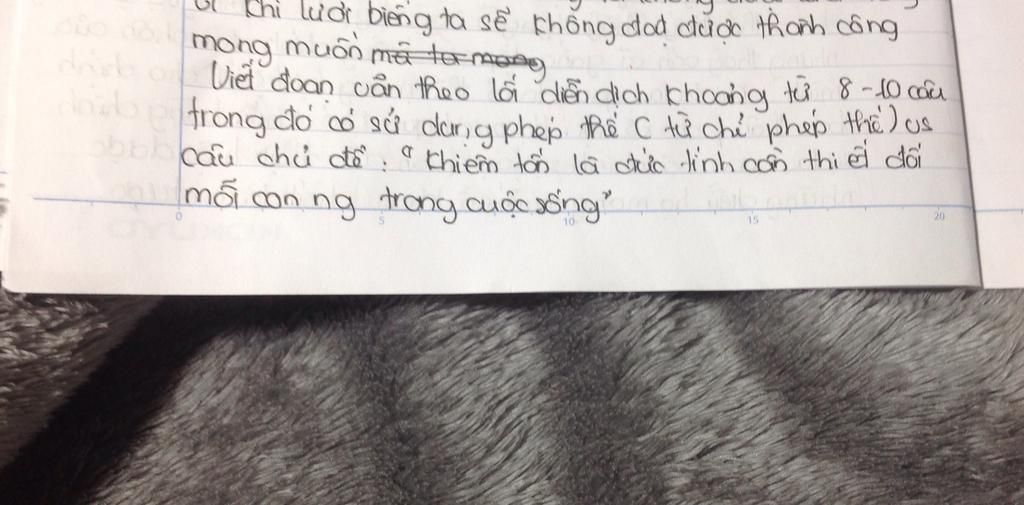 khi lười biếng ta sẽ không đạt được thành công
mong muốn mà ta mong
Viết đoạn văn theo lối diễn dịch khoảng từ 8-10 câu
trong đó có sử dụng phép thế ( từ chỉ phép thế ) vs
câu chủ đề : " Khiêm tốn là đức tính cần thiết đối
mỗi con ng trong cuộc sống"
0 5 10 15 20